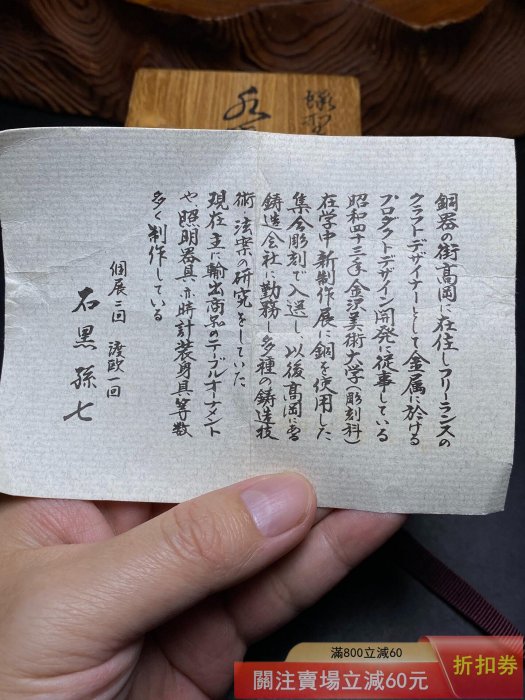 銅器の街高岡に在住しフリーランスの
クラフトデザイナーとして金属に於ける
プロダクトデザイン開発に従事している
昭和四十三年金沢美術大学(彫刻科)
在学中新制作展に銅を使用した
集合彫刻で入選し、以後高岡に需る
鋳造会社に勤務し多種の鋳造技
術、法案の研究をしていた。
現在主に輸出商品のテーブルオーナメント
や照明器具、時計装身具等数
多く制作している
個展二回 渡欧一回
石黒孫七
蝋型
滿800立減60
關注賣場立減60元
折扣券